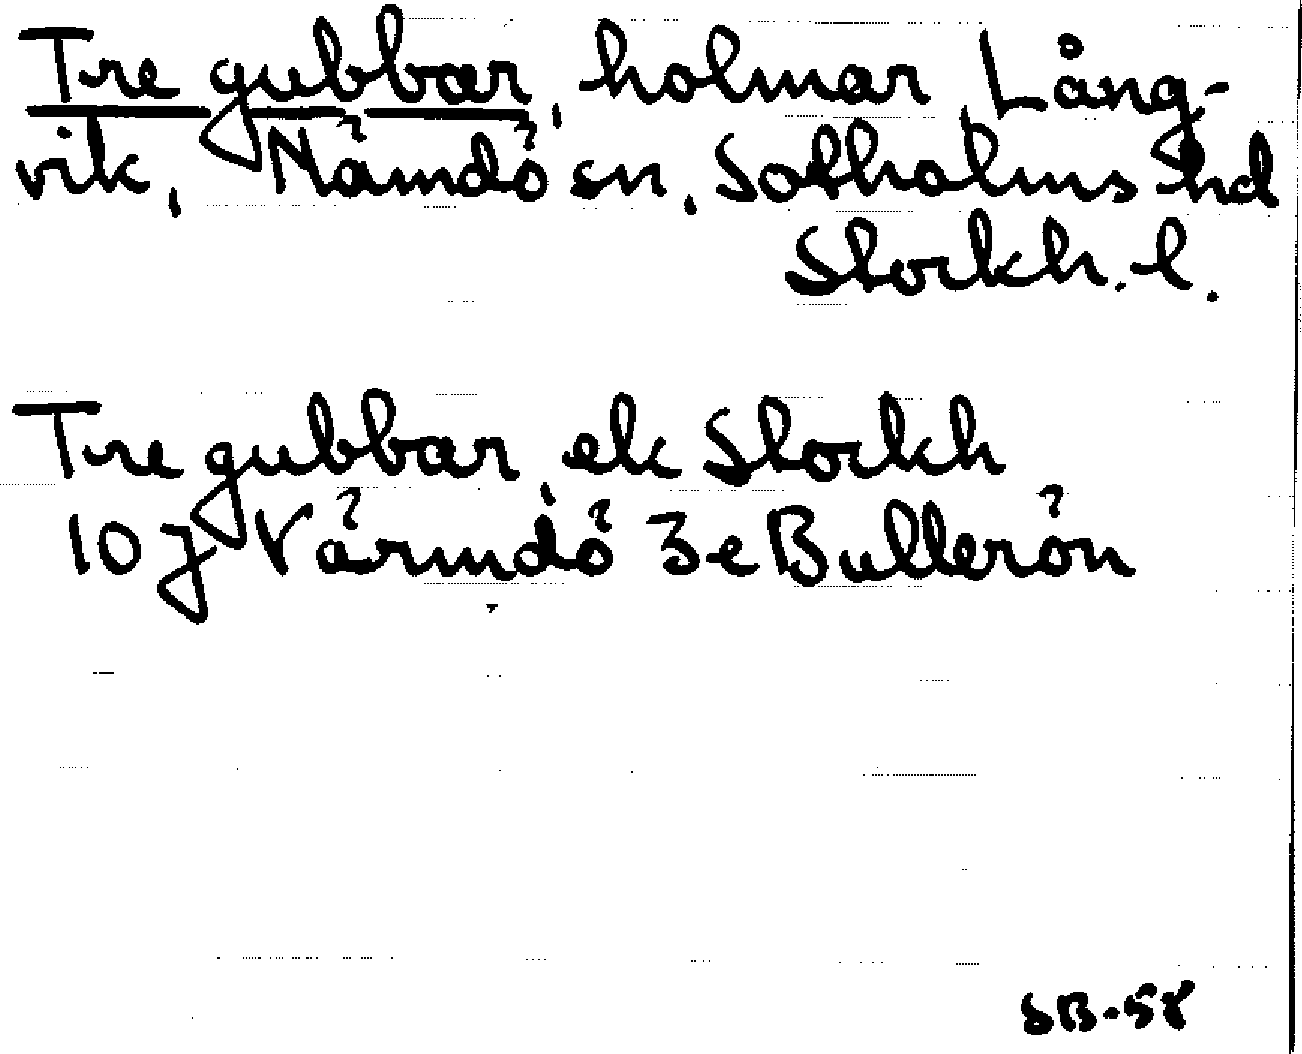 Tre gubbar, holmar, Lång-
vik, Nämdö sn, Sotholms hd
Stockh. l.
Tre gubbar, ek Stockh
10 j Värmdö 3e Bullerön
SB-58